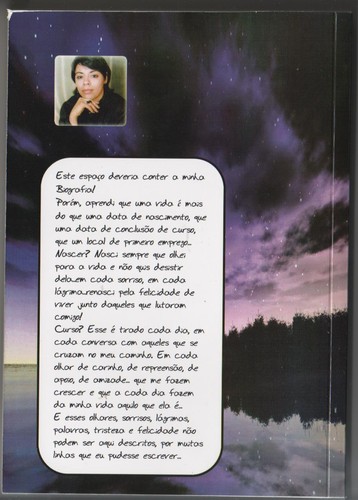 Este espaço deveria conter a minha
Biografia!
Porém, aprendi que uma vida é mais
do que uma data de nascimento, que
uma data de conclusão de curso,
que um local de primeiro emprego...
Nascer? Nasci sempre que olhei
para a vida e não quis desistir
dela...em cada sorriso, em cada
lágrima...renasci pela felicidade de
viver junto daqueles que lutaram
comigo!
Curso? Esse é tirado cada dia, em
cada conversa com aqueles que se
cruzam no meu caminho. Em cada
olhar de carinho, de repreensão, de
apoio, de amizade... que me fazem
crescer e que a cada dia fazem
da minha vida aquilo que ela é...
E esses olhares, sorrisos, lágrimas,
palavras, tristeza e felicidade não
podem ser aqui descritos, por muitas
linhas que eu pudesse escrever...